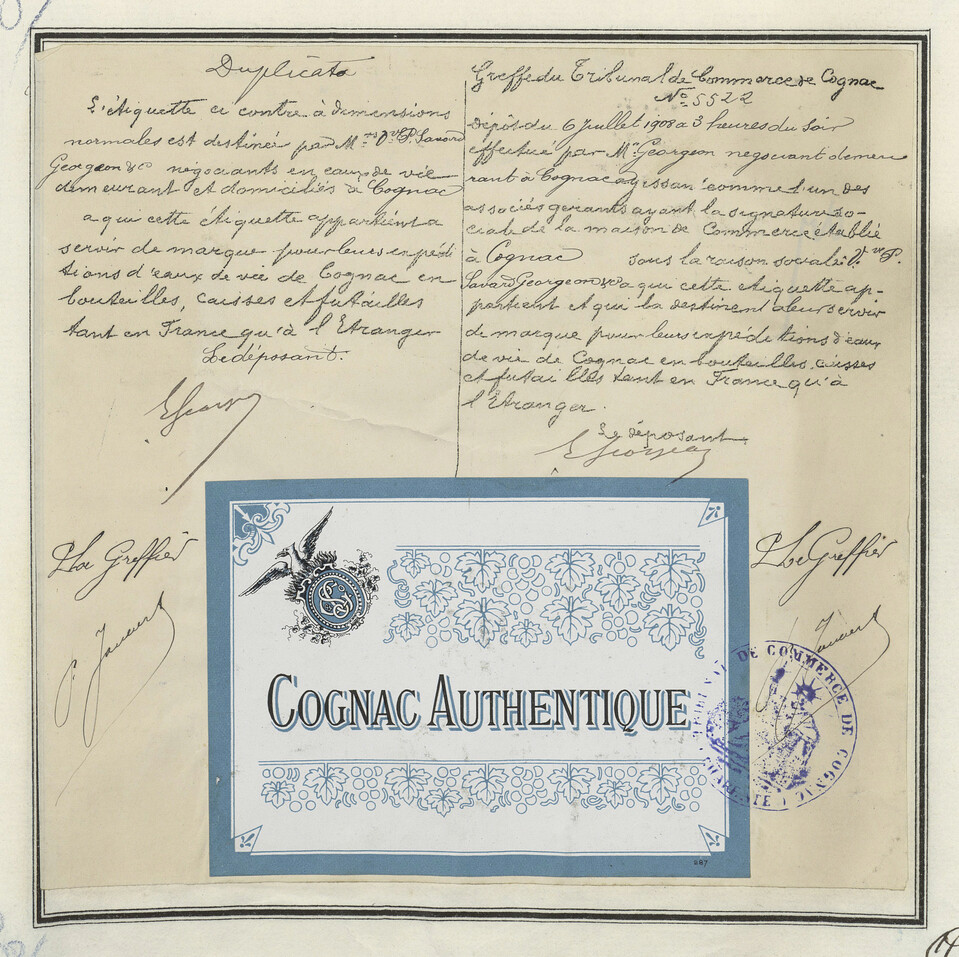 Duplicata
L'étiquette ci contre à dimensions
normales est destinée par Mrs Vve P. Savard
Georgeon & Co négociants en eaux de vie
demeurant et domiciliés à Cognac
a qui cette étiquette appartient a
servir de marque pour leurs expédi
tions d'eaux de vie de Cognac en
bouteilles, caisses et futailles
tant en France qu'à l'Etranger
Le déposant.
E Georgeon
P Le Greffier
P. Jannaud
Greffe du Tribunal de Commerce de Cognac
No 5522
Dépôt du 6 juillet 1908 a 3 heures du soir
effectué par Mr Georgeon negociant demeu
rant à Cognac agissant comme l'un des
associés gerants ayant la signature so-
ciale de la maison de Commerce établie
à Cognac sous la raison sociale Vve P.
Savard Georgeon & Co a qui cette étiquette ap-
partient et qui la destinent a leur servir
de marque pour leurs expéditions d'eaux
de vie de Cognac en bouteilles, caisses
et futailles tant en France qu'à
l'Etranger.
Le déposant
E Georgeon
P Le Greffier
COGNAC AUTHENTIQUE
287
TRIBUNAL DE COMMERCE DE COGNAC